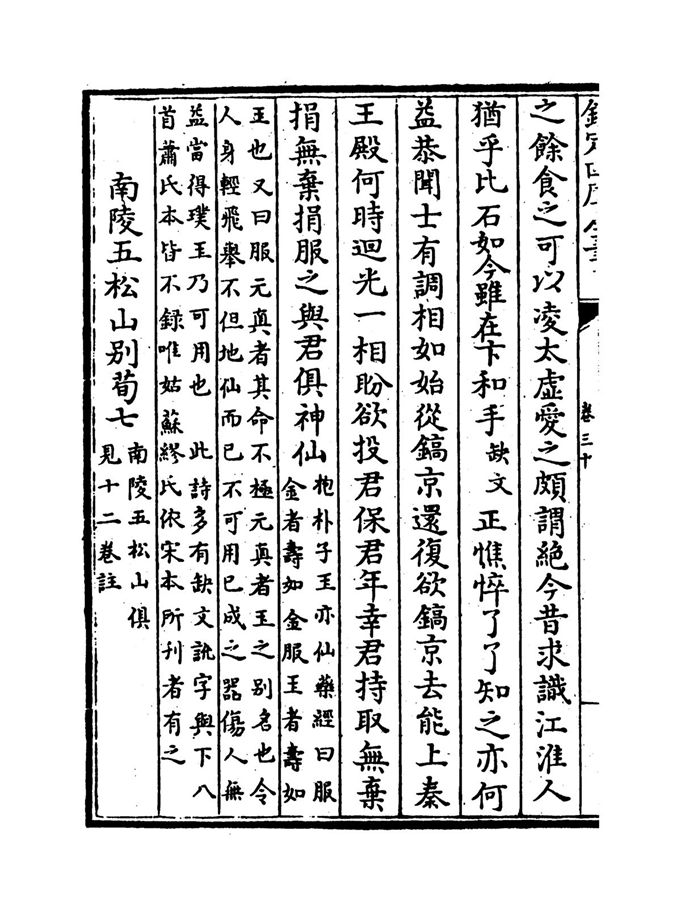 欽定四庫全書
卷三十
之餘食之可以凌太虛愛之頗謂絕今昔求識江淮人
猶乎比石如今雖在卞和手缺文正憔悴了了知之亦何
益恭聞士有調相如始從鎬京還復欲鎬京去能上秦
王殿何時迴光一相盼欲投君保君年幸君持取無棄
捐無棄捐服之與君俱神仙
抱朴子玉亦仙藥經曰服
金者壽如金服玉者壽如
玉也又曰服元真者其命不極元真者玉之别名也令
人身輕飛舉不但地仙而已不可用已成之器傷人無
益當得璞玉乃可用也 此詩多有缺文訛字與下八
首蕭氏本皆不錄唯姑蘇繆氏依宋本所刊者有之
南陵五松山别荀七
南陵五松山俱
見十二卷註